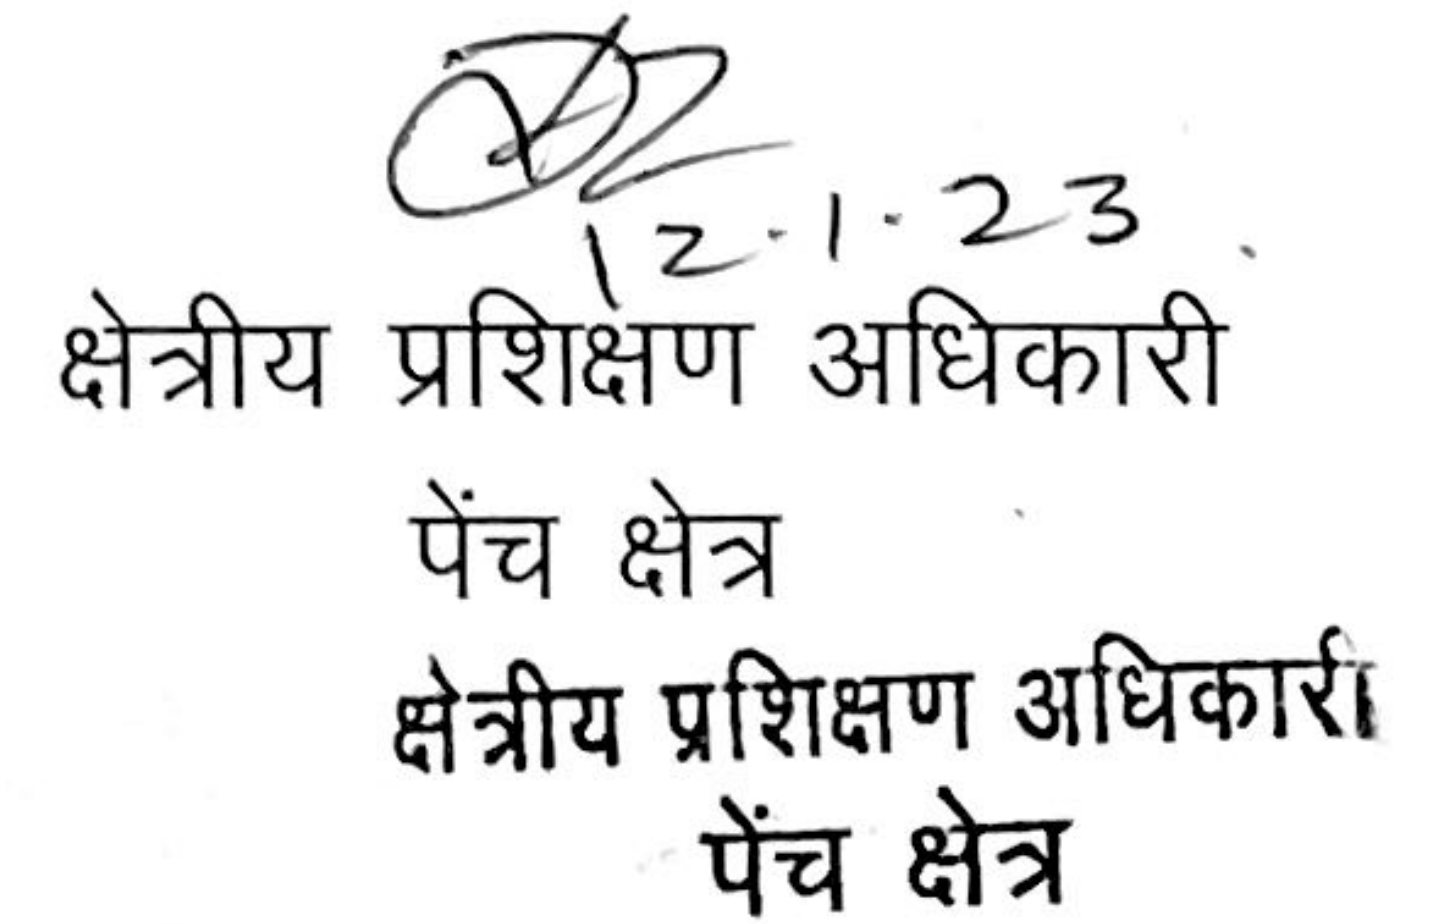 12.1.23
क्षेत्रीय प्रशिक्षण अधिकारी
पेंच क्षेत्र
क्षेत्रीय प्रशिक्षण अधिकारी
पेंच क्षेत्र